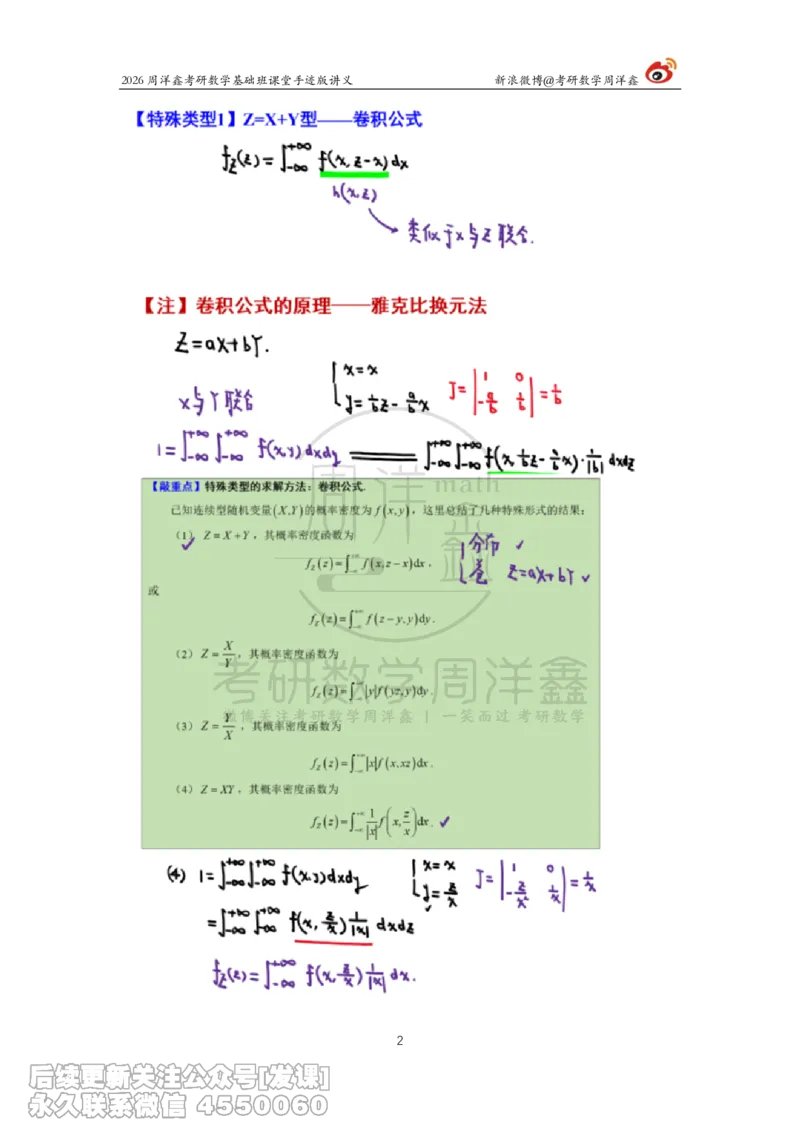 2026 周洋鑫考研数学基础班课堂手迹版讲义 新浪微博@考研数学周洋鑫
【特殊类型1】Z=X+Y型——卷积公式
f_Z(z)=∫_{-∞}^{+∞} f(x, z-x)dx
h(x,z)
类似于x与z联合.
【注】卷积公式的原理——雅克比换元法
Z=aX+bY.
x与Y联合
{ x=x
y=1/b z - a/b x
J=|1 0; -a/b 1/b|=1/b
1=∫_{-∞}^{+∞}∫_{-∞}^{+∞} f(x,y)dxdy ═══ ∫_{-∞}^{+∞}∫_{-∞}^{+∞} f(x, 1/b z - a/b x)·1/|b| dxdz
【敲重点】特殊类型的求解方法：卷积公式.
已知连续型随机变量(X,Y)的概率密度为 f(x,y)，这里总结了几种特殊形式的结果：
（1） Z=X+Y，其概率密度函数为
f_Z(z)=∫_{-∞}^{+∞} f(x,z-x)dx，
{ 分布 ✓
卷 Z=aX+bY ✓
或
f_Z(z)=∫_{-∞}^{+∞} f(z-y,y)dy.
（2） Z=X/Y，其概率密度函数为
f_Z(z)=∫_{-∞}^{+∞} |y|f(yz,y)dy.
（3） Z=Y/X，其概率密度函数为
f_Z(z)=∫_{-∞}^{+∞} |x|f(x,xz)dx.
（4） Z=XY，其概率密度函数为
f_Z(z)=∫_{-∞}^{+∞} 1/|x| f(x, z/x)dx. ✓
周洋鑫
math
考研数学周洋鑫
微博关注考研数学周洋鑫 | 一笑而过 考研数学
(4) 1=∫_{-∞}^{+∞}∫_{-∞}^{+∞} f(x,y)dxdy
{ x=x
y=z/x
J=|1 0; -z/x² 1/x|=1/x
=∫_{-∞}^{+∞}∫_{-∞}^{+∞} f(x, z/x)1/|x| dxdz
f_Z(z)=∫_{-∞}^{+∞} f(x, z/x)1/|x| dx.
2
后续更新关注公众号[发课]
永久联系微信 4550060